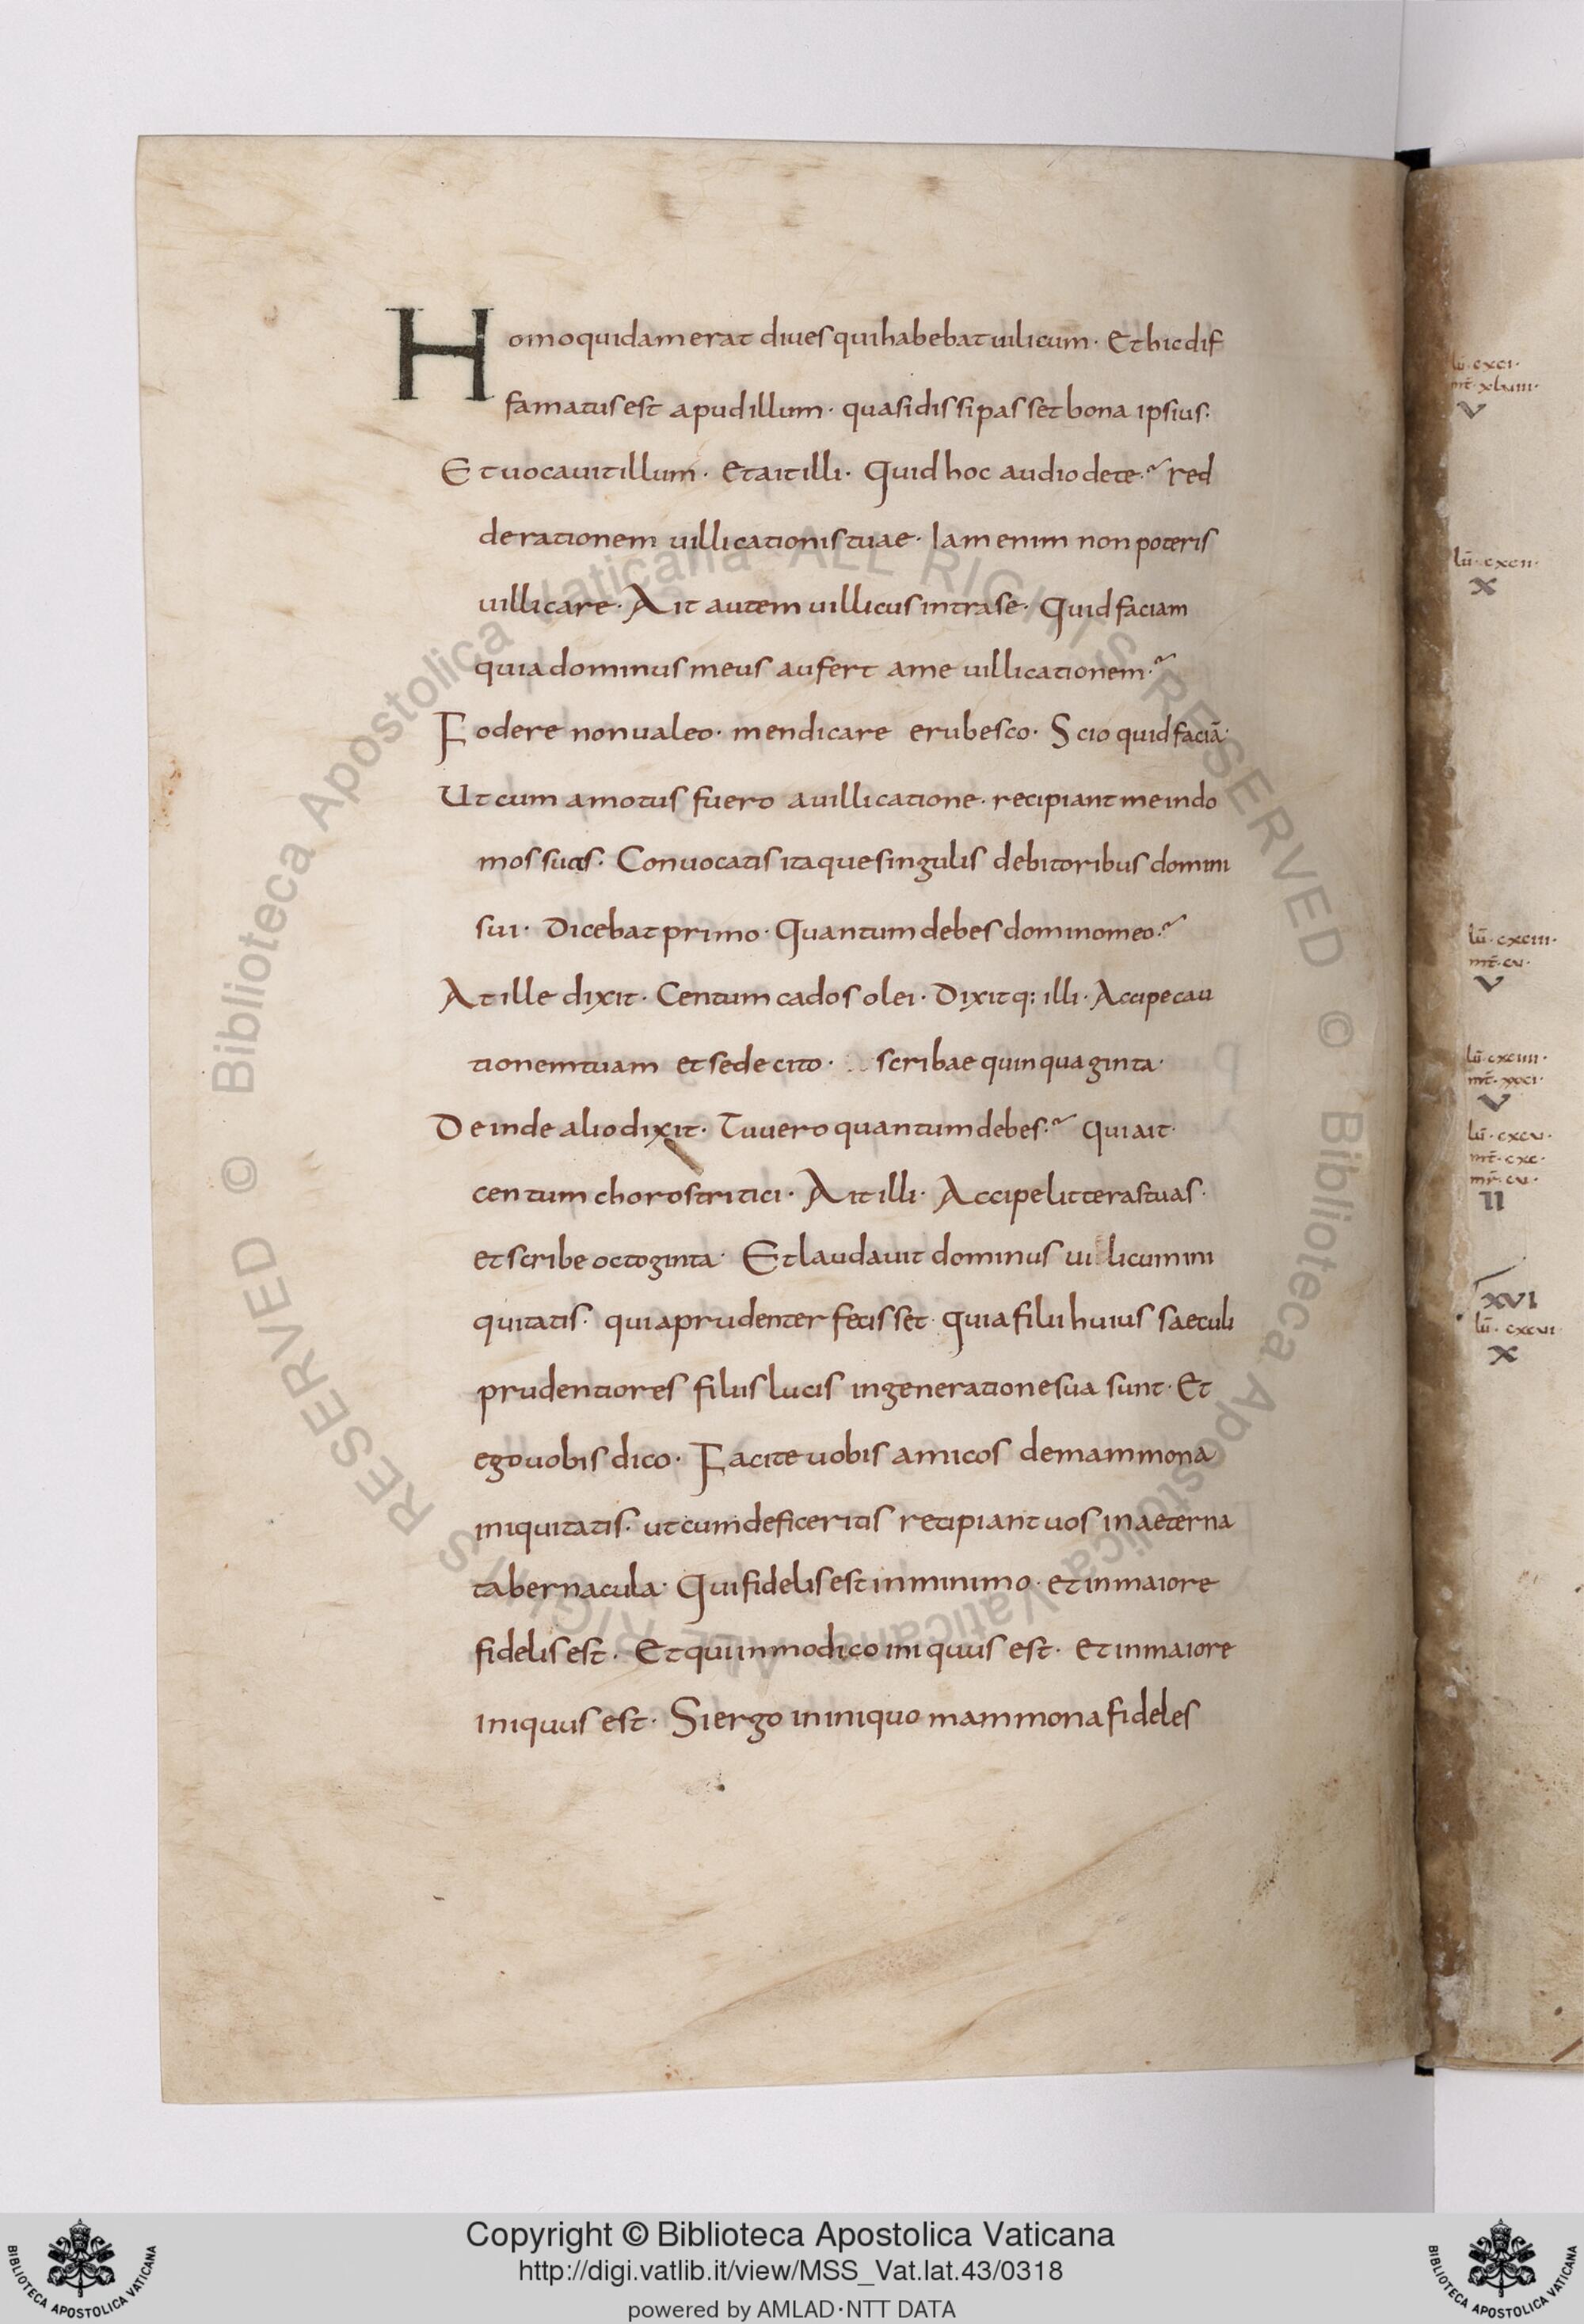 Homo quidam erat diues qui habebat uilicum · Et hic dif
famatus est apud illum · quasi dissipasset bona ipsius ·
Et uocauit illum · Et ait illi · Quid hoc audio de te ·~ red
de rationem uillicationis tuae · Iam enim non poteris
uillicare · Ait autem uillicus intra se · Quid faciam
quia dominus meus aufert a me uillicationem ·~
Fodere non ualeo · mendicare erubesco · Scio quid faciā ·
Ut cum amotus fuero a uillicatione · recipiant me in do
mos suas · Conuocatis itaque singulis debitoribus domini
sui · Dicebat primo · Quantum debes domino meo ·~
At ille dixit · Centum cados olei · Dixitq; illi · Accipe cau
tionem tuam et sede cito · scribae quinquaginta ·
Deinde alio dixit · Tu uero quantum debes ·~ Qui ait ·
centum choros tritici · Ait illi · Accipe litteras tuas ·
et scribe octoginta · Et laudauit dominus uilicum ini
quitatis · quia prudenter fecisset · Quia filii huius saeculi
prudentiores filiis lucis in generatione sua sunt · Et
ego uobis dico · Facite uobis amicos de mammona
iniquitatis · ut cum deficeritis recipiant uos in aeterna
tabernacula · Qui fidelis est in minimo · et in maiore
fidelis est · Et qui in modico iniquus est · et in maiore
iniquus est · Si ergo in iniquo mammona fideles
lū · cxci ·
mt̄ · xlviii ·
V
lū · cxcii ·
X
lū · cxciii ·
mt̄ · cv ·
V
lū · cxciiii ·
V
lū · cxcv ·
mt̄ · cxc ·
mr̄ · cv ·
II
XVI
lū · cxcvi
X
© Biblioteca Apostolica Vaticana ALL RIGHTS RESERVED
© Biblioteca Apostolica Vaticana ALL RIGHTS RESERVED
Copyright © Biblioteca Apostolica Vaticana
http://digi.vatlib.it/view/MSS_Vat.lat.43/0318
powered by AMLAD·NTT DATA
BIBLIOTECA APOSTOLICA VATICANA
BIBLIOTECA APOSTOLICA VATICANA